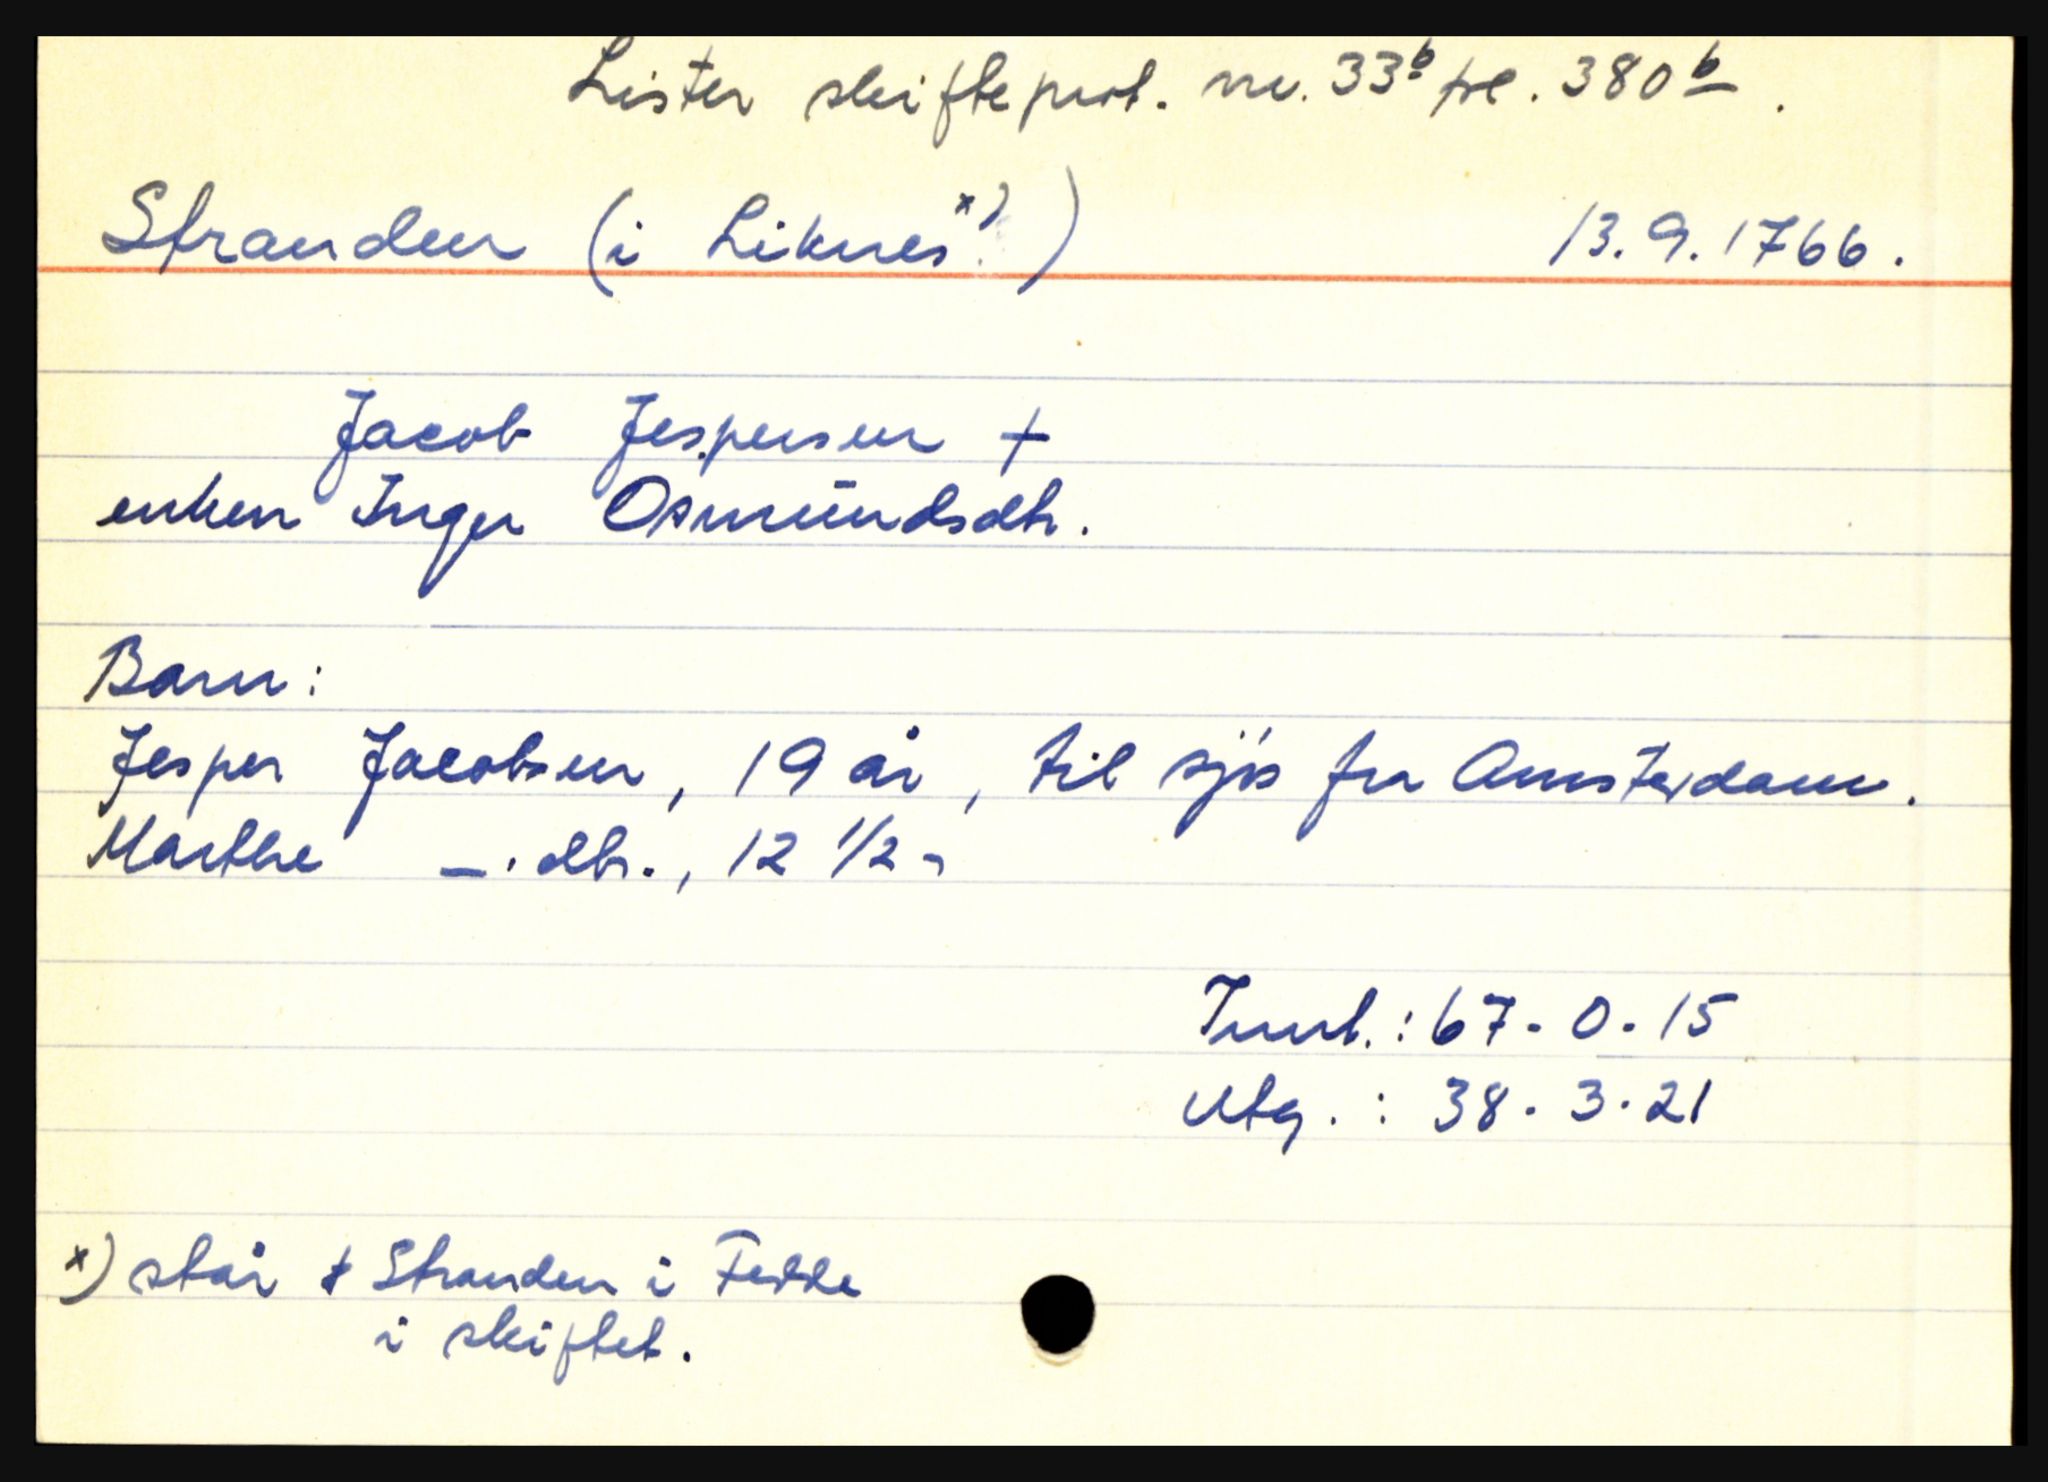 Lister skifteprot. nr. 33b fol. 380b.
Stranden (i Liknes x)) 13.9.1766.
Jacob Jespersen †
enken Inger Osmundsdtr.
Barn:
Jesper Jacobsen, 19 år, til sjös fra Amsterdam.
Marthe —"— dtr., 12 1/2 "
Innt.: 67 - 0 - 15
Utg.: 38 - 3 - 21
x) står Stranden i Fedde
i skiftet.